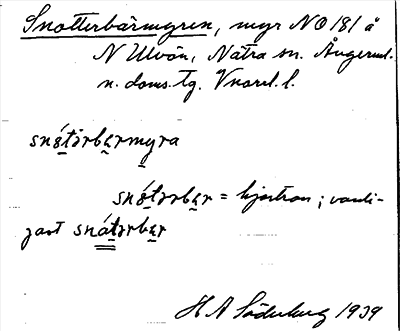 Snotterbärmyren, myr NO 181 å
N Ulvön, Nätra sn. Ångerml.
n. doms. tg. Vnorrl. l.
snǿtərbermyra
snǿtərber = hjortron; vanli-
gast snátərber
H A Söderberg 1939